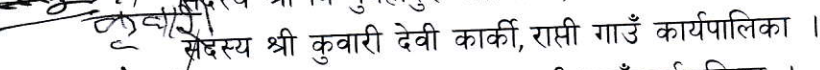 सदस्य श्री कुवारी देवी कार्की, राप्ती गाउँ कार्यपालिका ।